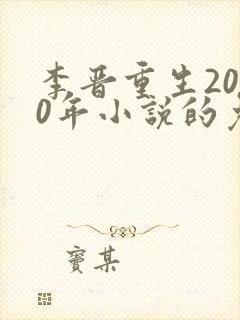 李晋重生20
0年小說的
竇某